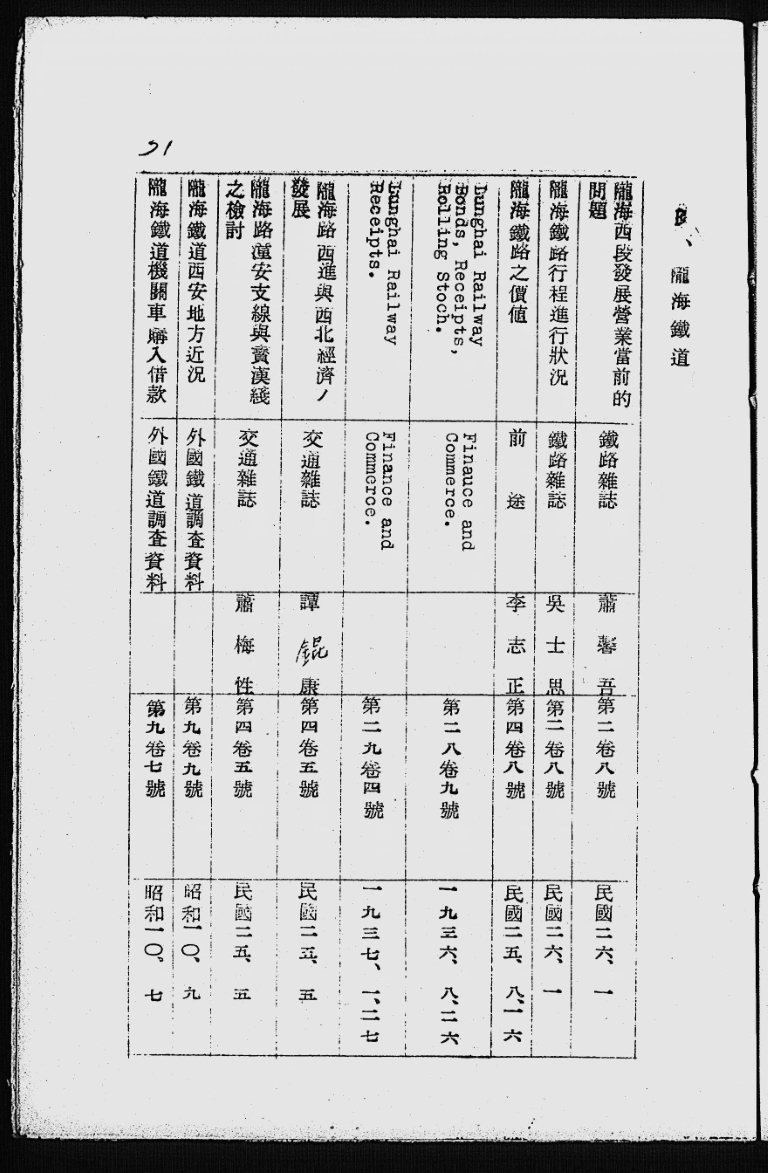 、隴海鐵道
隴海西段發展營業當前的
問題
鐵路雜誌
蕭馨吾
第二卷八號
民國二六、一
隴海鐵路行程進行狀況
鐵路雜誌
吳士恩
第二卷八號
民國二六、一
隴海鐵路之價値
前途
李志正
第四卷八號
民國二五、八、一六
Lunghai Railway
Bonds, Receipts,
Rolling Stoch.
Finauce and
Commerce.
第二八卷九號
一九三六、八、二六
Lunghai Railway
Receipts.
Finance and
Commerce.
第二九卷四號
一九三七、一、二七
隴海路西進與西北經濟ノ
發展
交通雜誌
譚錕康
第四卷五號
民國二五、五
隴海路潼安支線與寶漢綫
之檢討
交通雜誌
蕭梅性
第四卷五號
民國二五、五
隴海鐵道西安地方近況
外國鐵道調査資料
第九卷九號
昭和一〇、九
隴海鐵道機關車購入借款
外國鐵道調査資料
第九卷七號
昭和一〇、七